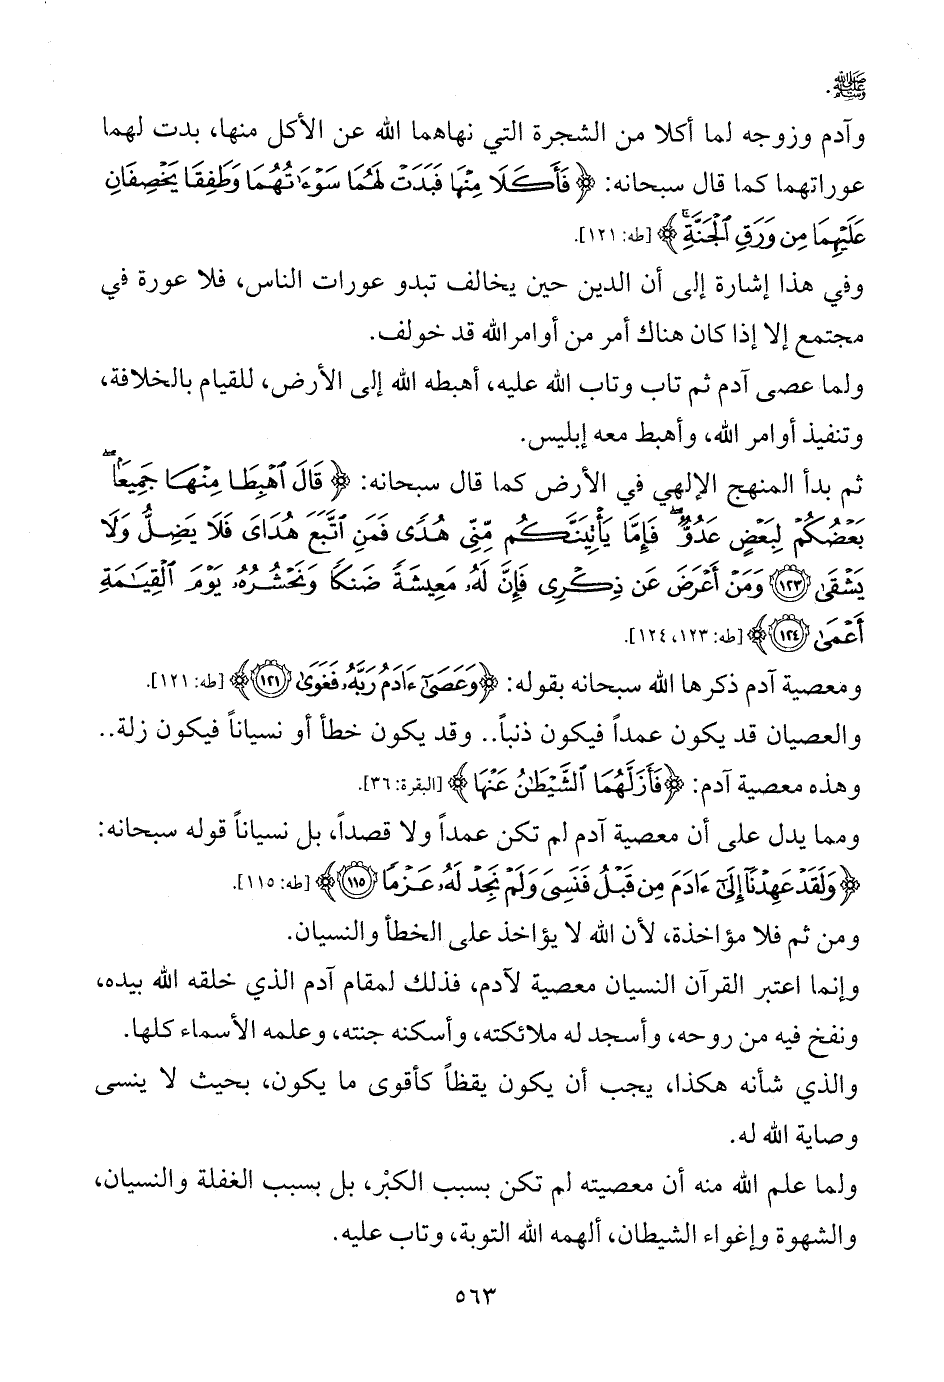 ﷺ.
وآدم وزوجه لما أكلا من الشجرة التي نهاهما الله عن الأكل منها، بدت لهما
عوراتهما كما قال سبحانه: ﴿فَأَكَلَا مِنْهَا فَبَدَتْ لَهُمَا سَوْءَٰتُهُمَا وَطَفِقَا يَخْصِفَانِ
عَلَيْهِمَا مِن وَرَقِ ٱلْجَنَّةِ ۚ﴾ [طه: ١٢١].
وفي هذا إشارة إلى أن الدين حين يخالف تبدو عورات الناس، فلا عورة في
مجتمع إلا إذا كان هناك أمر من أوامر الله قد خولف.
ولما عصى آدم ثم تاب وتاب الله عليه، أهبطه الله إلى الأرض، للقيام بالخلافة،
وتنفيذ أوامر الله، وأهبط معه إبليس.
ثم بدأ المنهج الإلهي في الأرض كما قال سبحانه: ﴿قَالَ ٱهْبِطَا مِنْهَا جَمِيعًۢا ۖ
بَعْضُكُمْ لِبَعْضٍ عَدُوٌّ ۖ فَإِمَّا يَأْتِيَنَّكُم مِّنِّى هُدًى فَمَنِ ٱتَّبَعَ هُدَاىَ فَلَا يَضِلُّ وَلَا
يَشْقَىٰ ﴿١٢٣﴾ وَمَنْ أَعْرَضَ عَن ذِكْرِى فَإِنَّ لَهُۥ مَعِيشَةً ضَنكًا وَنَحْشُرُهُۥ يَوْمَ ٱلْقِيَـٰمَةِ
أَعْمَىٰ ﴿١٢٤﴾﴾ [طه: ١٢٣، ١٢٤].
ومعصية آدم ذكرها الله سبحانه بقوله: ﴿وَعَصَىٰٓ ءَادَمُ رَبَّهُۥ فَغَوَىٰ ﴿١٢١﴾﴾ [طه: ١٢١].
والعصيان قد يكون عمداً فيكون ذنباً.. وقد يكون خطأ أو نسياناً فيكون زلة..
وهذه معصية آدم: ﴿فَأَزَلَّهُمَا ٱلشَّيْطَـٰنُ عَنْهَا﴾ [البقرة: ٣٦].
ومما يدل على أن معصية آدم لم تكن عمداً ولا قصداً، بل نسياناً قوله سبحانه:
﴿وَلَقَدْ عَهِدْنَآ إِلَىٰٓ ءَادَمَ مِن قَبْلُ فَنَسِىَ وَلَمْ نَجِدْ لَهُۥ عَزْمًا ﴿١١٥﴾﴾ [طه: ١١٥].
ومن ثم فلا مؤاخذة، لأن الله لا يؤاخذ على الخطأ والنسيان.
وإنما اعتبر القرآن النسيان معصية لآدم، فذلك لمقام آدم الذي خلقه الله بيده،
ونفخ فيه من روحه، وأسجد له ملائكته، وأسكنه جنته، وعلمه الأسماء كلها.
والذي شأنه هكذا، يجب أن يكون يقظاً كأقوى ما يكون، بحيث لا ينسى
وصاية الله له.
ولما علم الله منه أن معصيته لم تكن بسبب الكبْر، بل بسبب الغفلة والنسيان،
والشهوة وإغواء الشيطان، ألهمه الله التوبة، وتاب عليه.
٥٦٣